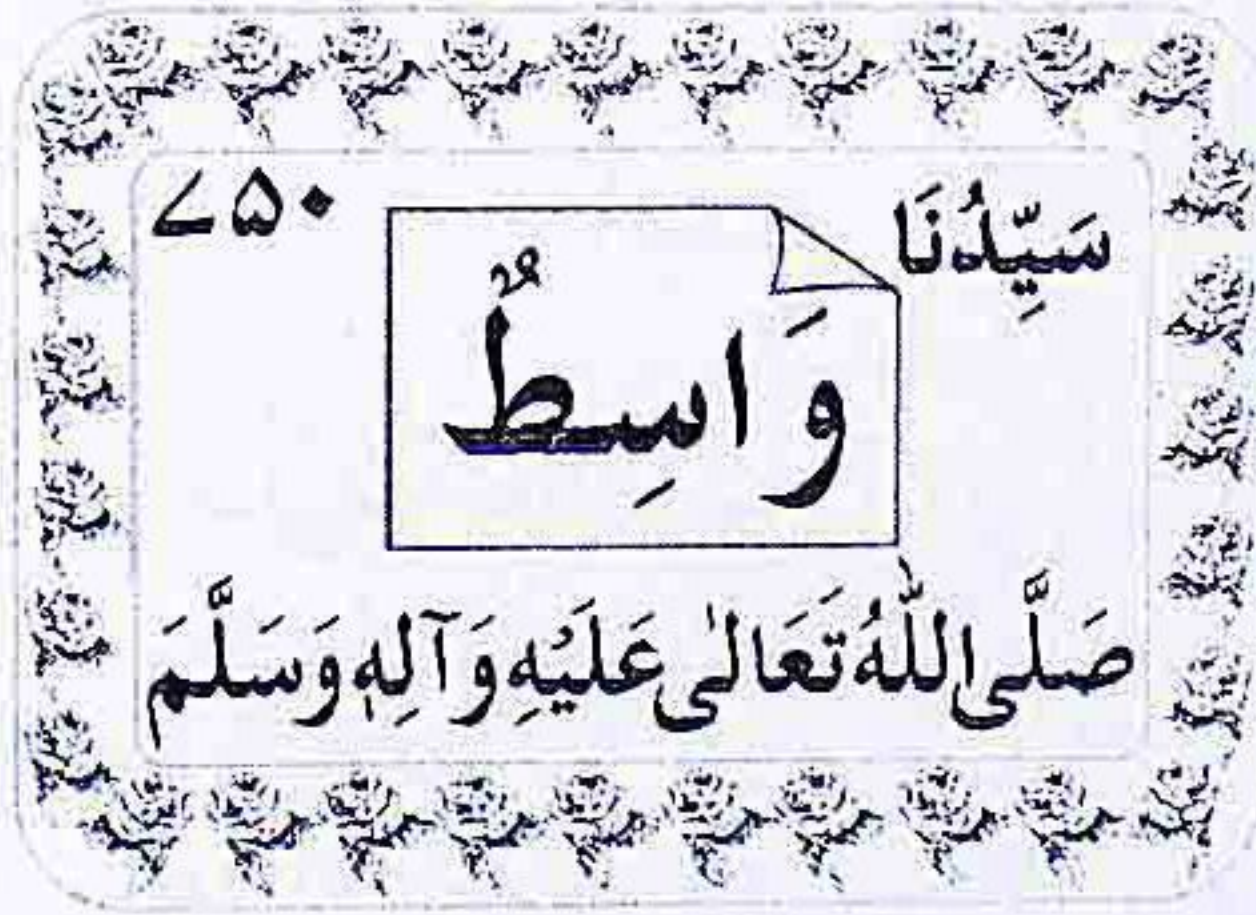 سَیِّدُنَا
۷۵۰
وَاسِطٌ
صَلَّی اللّٰهُ تَعَالٰی عَلَیْهِ وَآلِهٖ وَسَلَّمَ